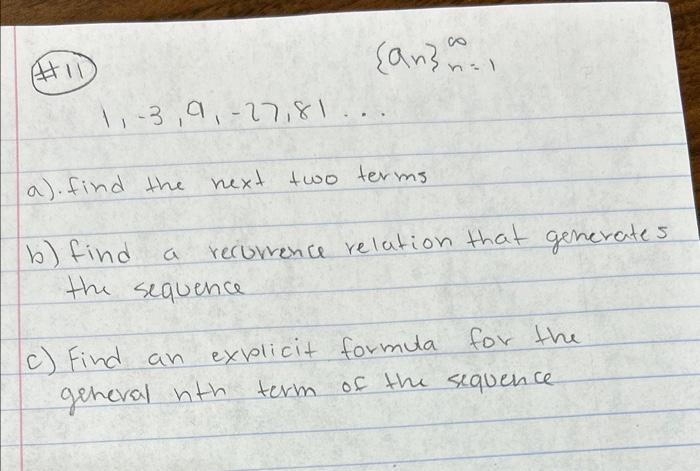 #11
{an}∞n=1
1, -3, 9, -27, 81 ...
a). find the next two terms
b) find a recurrence relation that generates
the sequence
c) Find an explicit formula for the
general nth term of the sequence